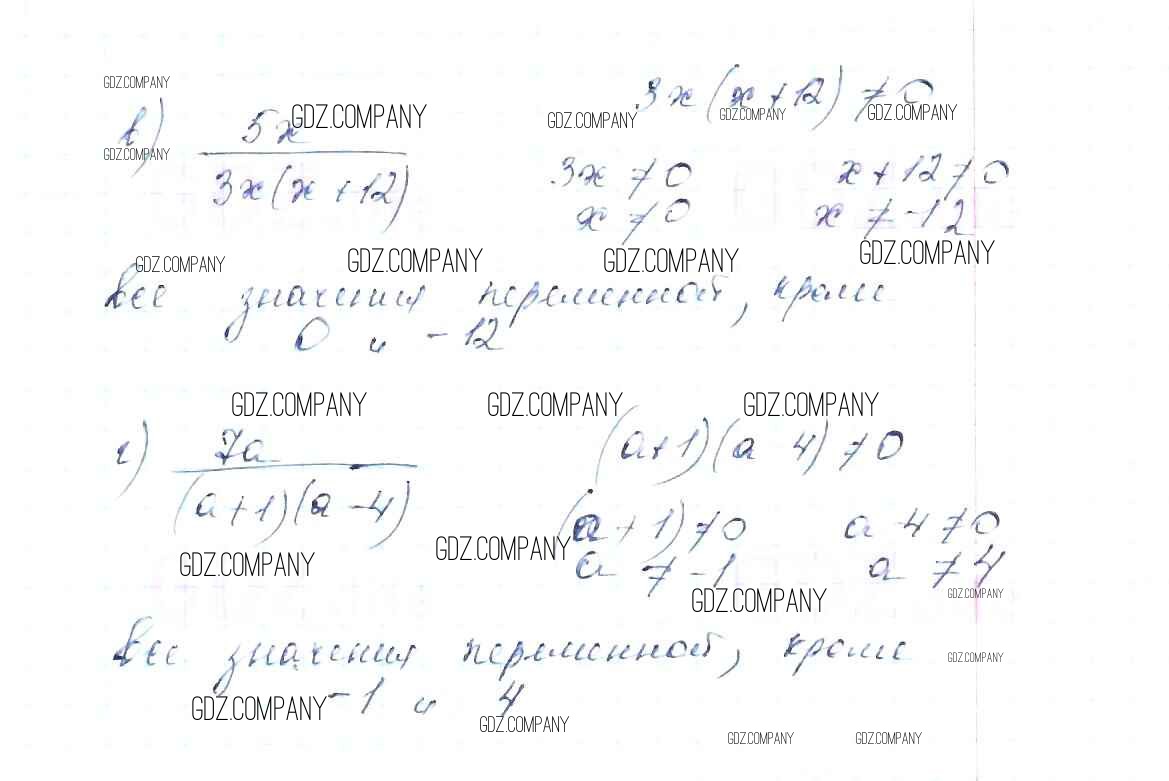 GDZ.COMPANY
3x(x+12)≠0
в) 5x GDZ.COMPANY GDZ.COMPANY GDZ.COMPANY GDZ.COMPANY
GDZ.COMPANY
3x(x+12) 3x≠0 x+12≠0
x≠0 x≠-12
GDZ.COMPANY GDZ.COMPANY GDZ.COMPANY GDZ.COMPANY
все значения переменной, кроме
0 и -12
GDZ.COMPANY GDZ.COMPANY GDZ.COMPANY
г) 7a (a+1)(a 4)≠0
(a+1)(a-4) (a+1)≠0 a 4≠0
GDZ.COMPANY GDZ.COMPANY a≠-1 a≠4
GDZ.COMPANY GDZ.COMPANY
все значения переменной, кроме
GDZ.COMPANY
GDZ.COMPANY -1 и 4
GDZ.COMPANY
GDZ.COMPANY GDZ.COMPANY